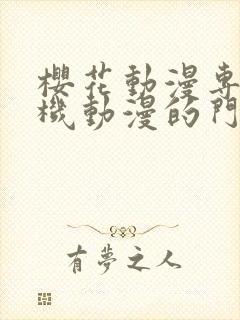 櫻花動漫專
機動漫的門
有夢之人